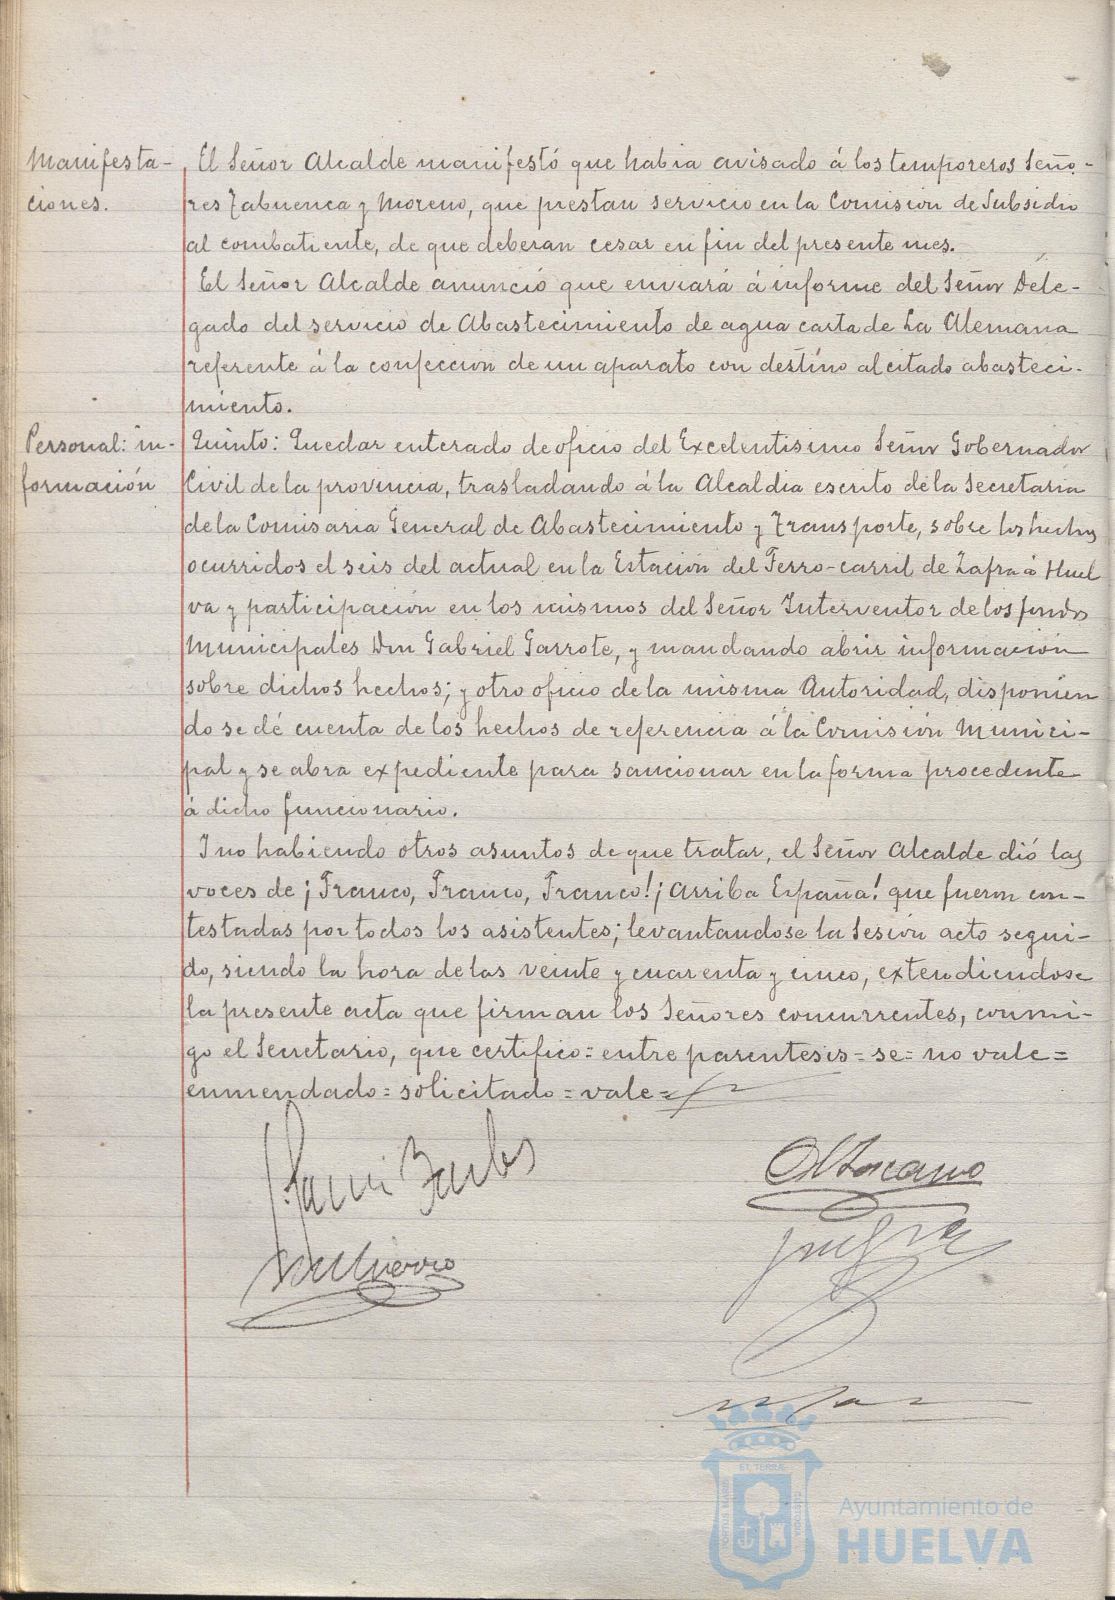 Manifesta-
ciones.
El Señor Alcalde manifestó que habia avisado á los temporeros Seño-
res Zabuenca y Moreno, que prestan servicio en la Comision de Subsidio
al combatiente, de que deberan cesar en fin del presente mes.
El Señor Alcalde anunció que enviará á informe del Señor Dele-
gado del servicio de Abastecimiento de agua carta de La Alemana
referente á la confeccion de un aparato con destino al citado abasteci-
miento.
Personal: in-
formación
Quinto: Quedar enterado de oficio del Excelentisimo Señor Gobernador
Civil de la provincia, trasladando á la Alcaldia escrito de la Secretaria
de la Comisaria General de Abastecimiento y Transporte, sobre los hechos
ocurridos el seis del actual en la Estación del Ferro-carril de Zafra á Huel
va y participación en los mismos del Señor Interventor de los fondos
Municipales Don Gabriel Garrote, y mandando abrir información
sobre dichos hechos; y otro oficio de la misma Autoridad, disponien
do se dé cuenta de los hechos de referencia á la Comisión Munici-
pal y se abra expediente para sancionar en la forma procedente
á dicho funcionario.
I no habiendo otros asuntos de que tratar, el Señor Alcalde dió las
voces de ¡Franco, Franco, Franco! ¡Arriba España! que fueron con-
testadas por todos los asistentes; levantandose la Sesión acto segui-
do, siendo la hora de las veinte y cuarenta y cinco, extendiendose
la presente acta que firman los Señores concurrentes, conmi-
go el Secretario, que certifico = entre parentesis = se = no vale =
enmendado = solicitado = vale =
PORTUS MARIS
ET TERRAE
CUSTODIA
Ayuntamiento de
HUELVA